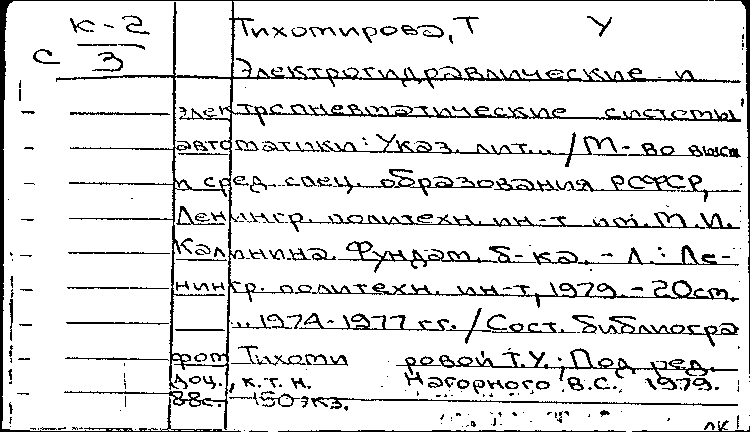 К-2 Тихомирова, Т У
С 3
Электрогидравлические и
электропневматические системы
автоматики: Указ. лит... / М-во высш
и сред. спец. образования РСФСР,
Ленингр. политехн. ин-т им. М.И.
Калинина. Фундам. б-ка. - Л.: Ле-
нингр. политехн. ин-т, 1979. - 20 см.
.. 1974-1977 гг. / Сост. библиогра
фот Тихоми ровой Т.У.; Под ред.
доц., к.т.н. Нагорного В.С. 1979.
88с. 150 экз.